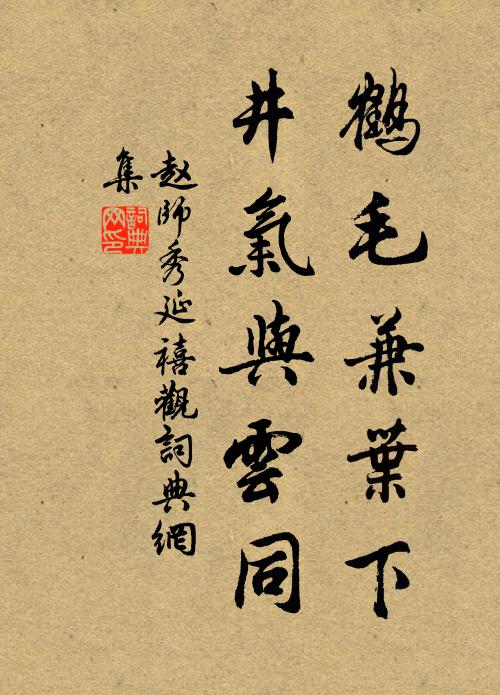 鶴毛兼葉下
井氣與雲同
赵師秀延禧觀詞典網
集
詞典
网印